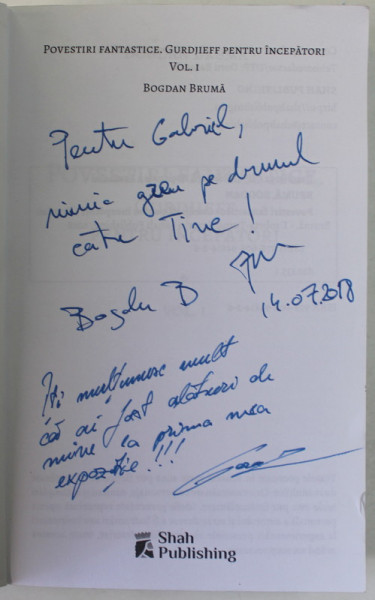 Povestiri fantastice. Gurdjieff pentru începători
Vol. 1
Bogdan Brumă
Pentru Gabriel,
nimic greu pe drumul
catre Tine!
Bogdan B
14.07.2018
Îți mulțumesc mult
că ai fost alături de
mine la prima mea
expoziție!!!
Shah
Publishing